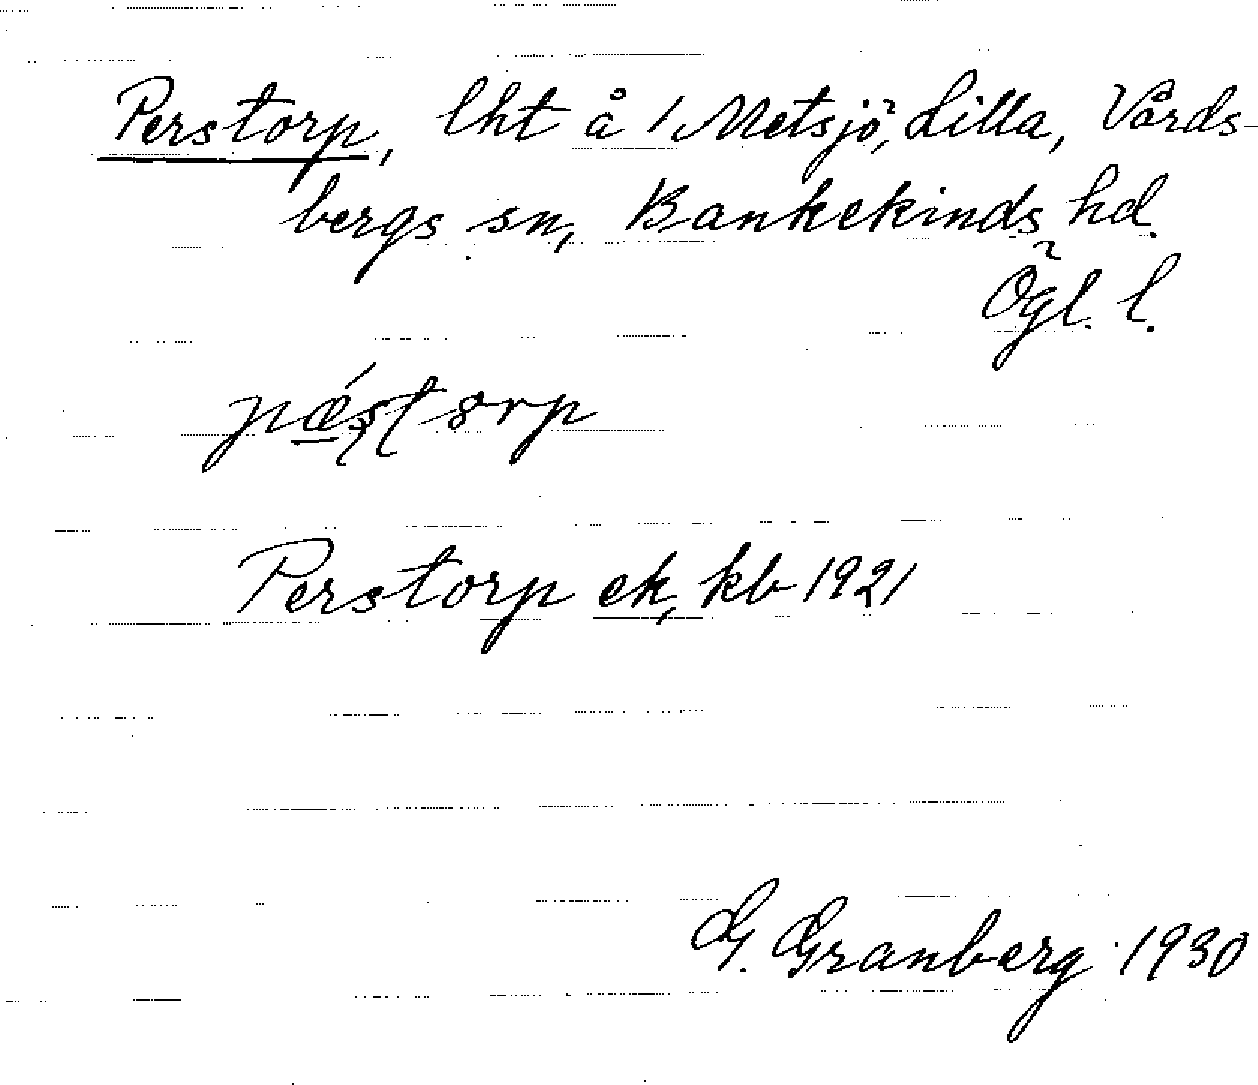 Perstorp, lht å 1 Metsjö, Lilla, Vårds-
bergs sn, Bankekinds hd.
Ögl. l.
pǽ̲storp
Perstorp ek, kb 1921
G. Granberg 1930